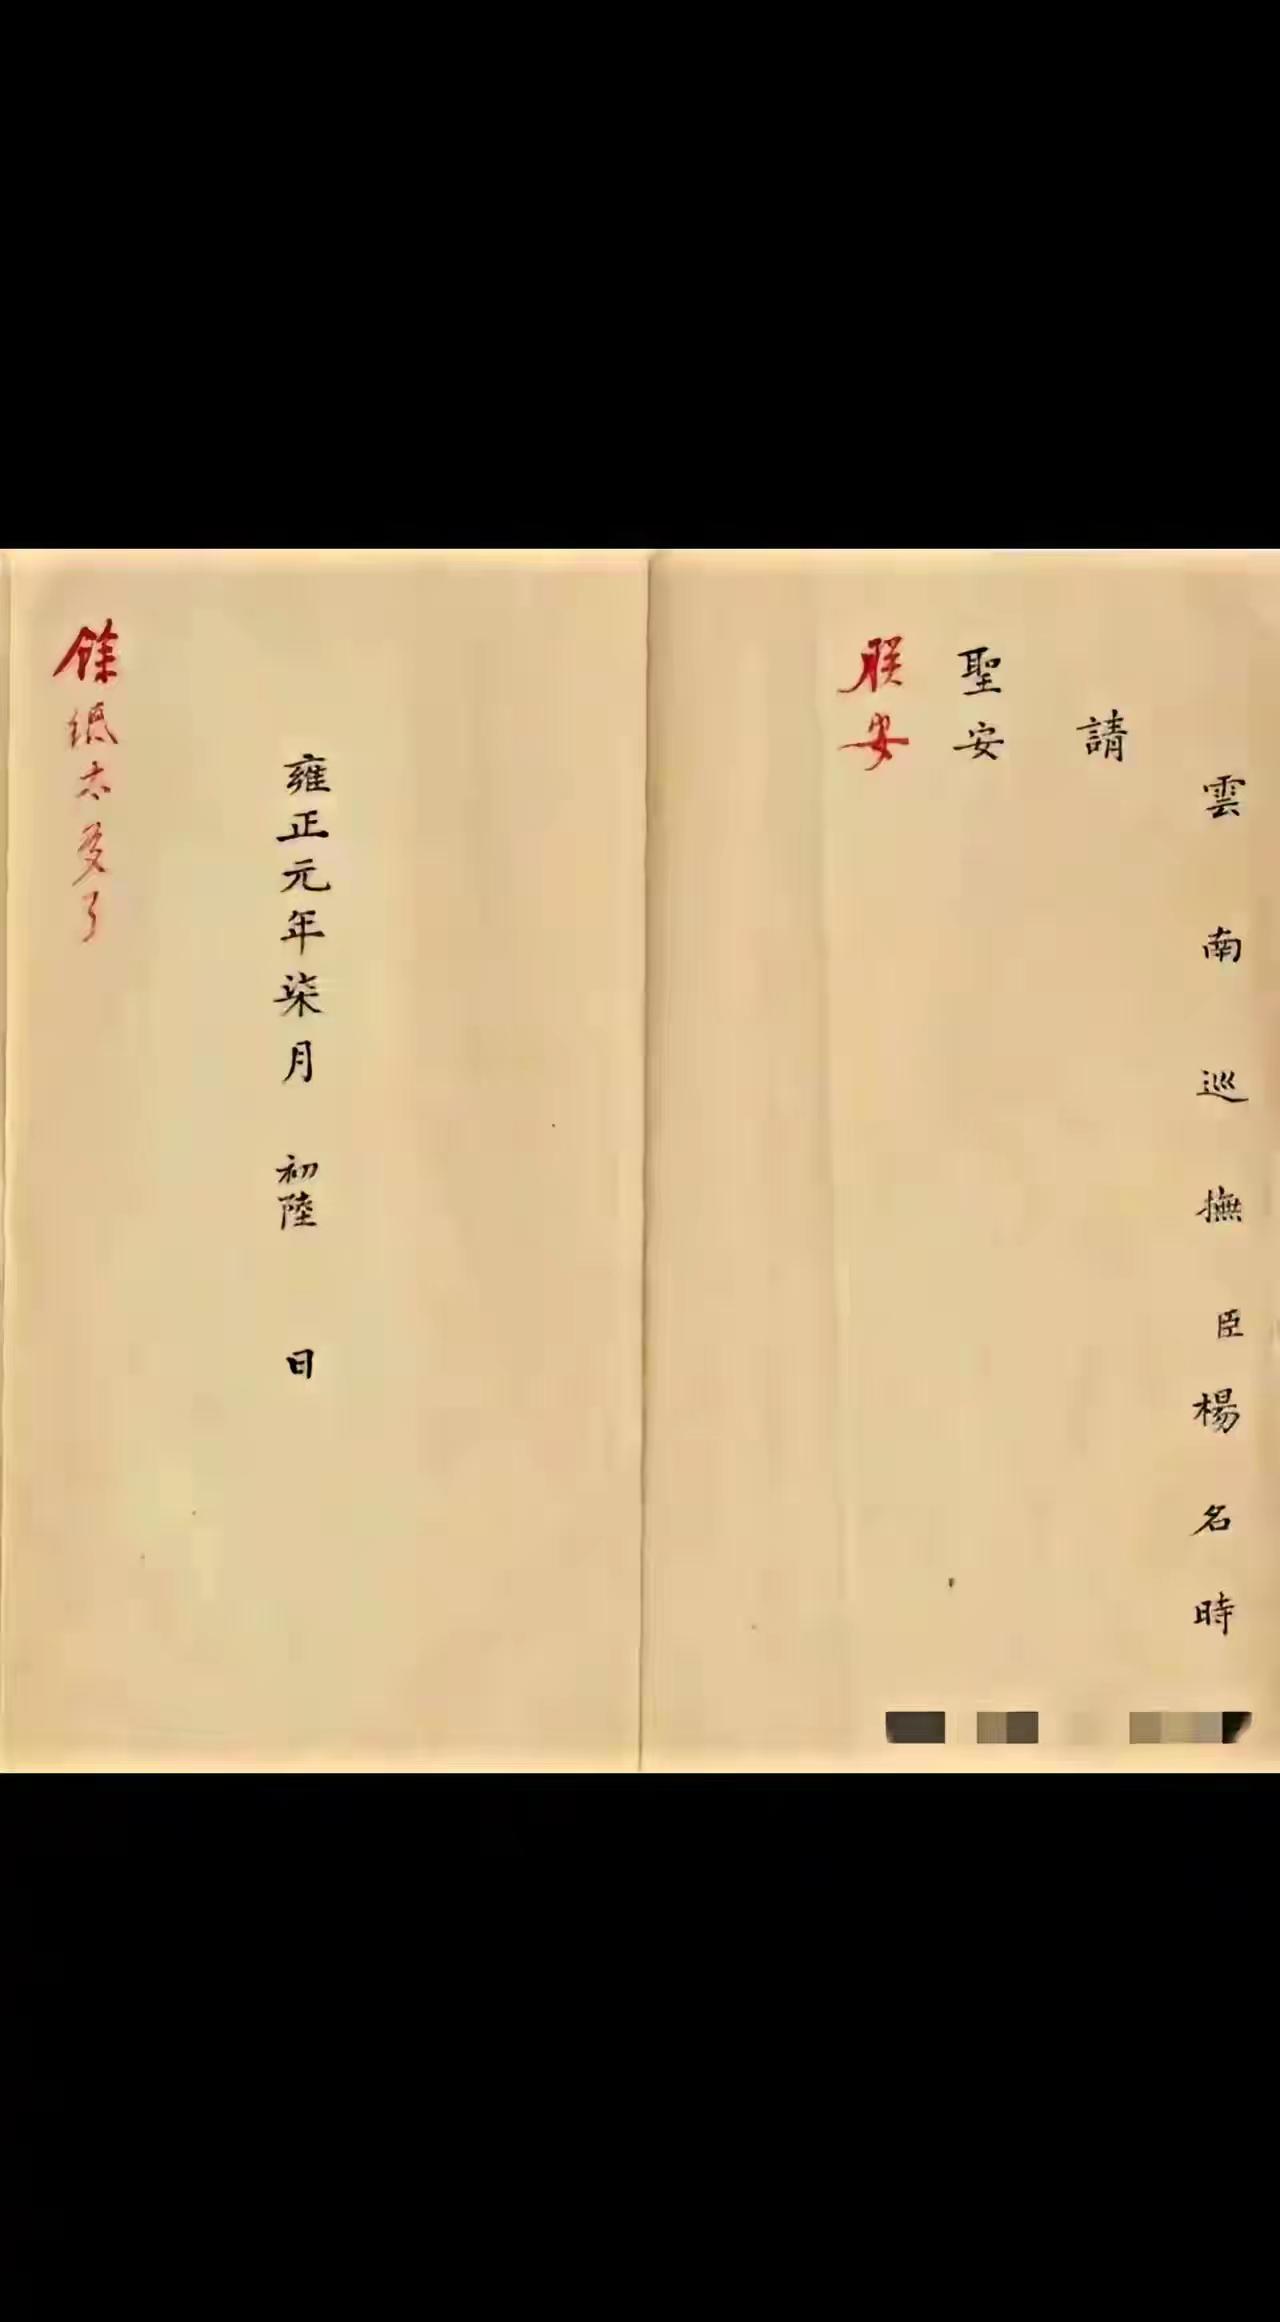 雲南巡撫臣楊名時
請
聖安
朕安
雍正元年柒月 初陸 日
餘紙太多了